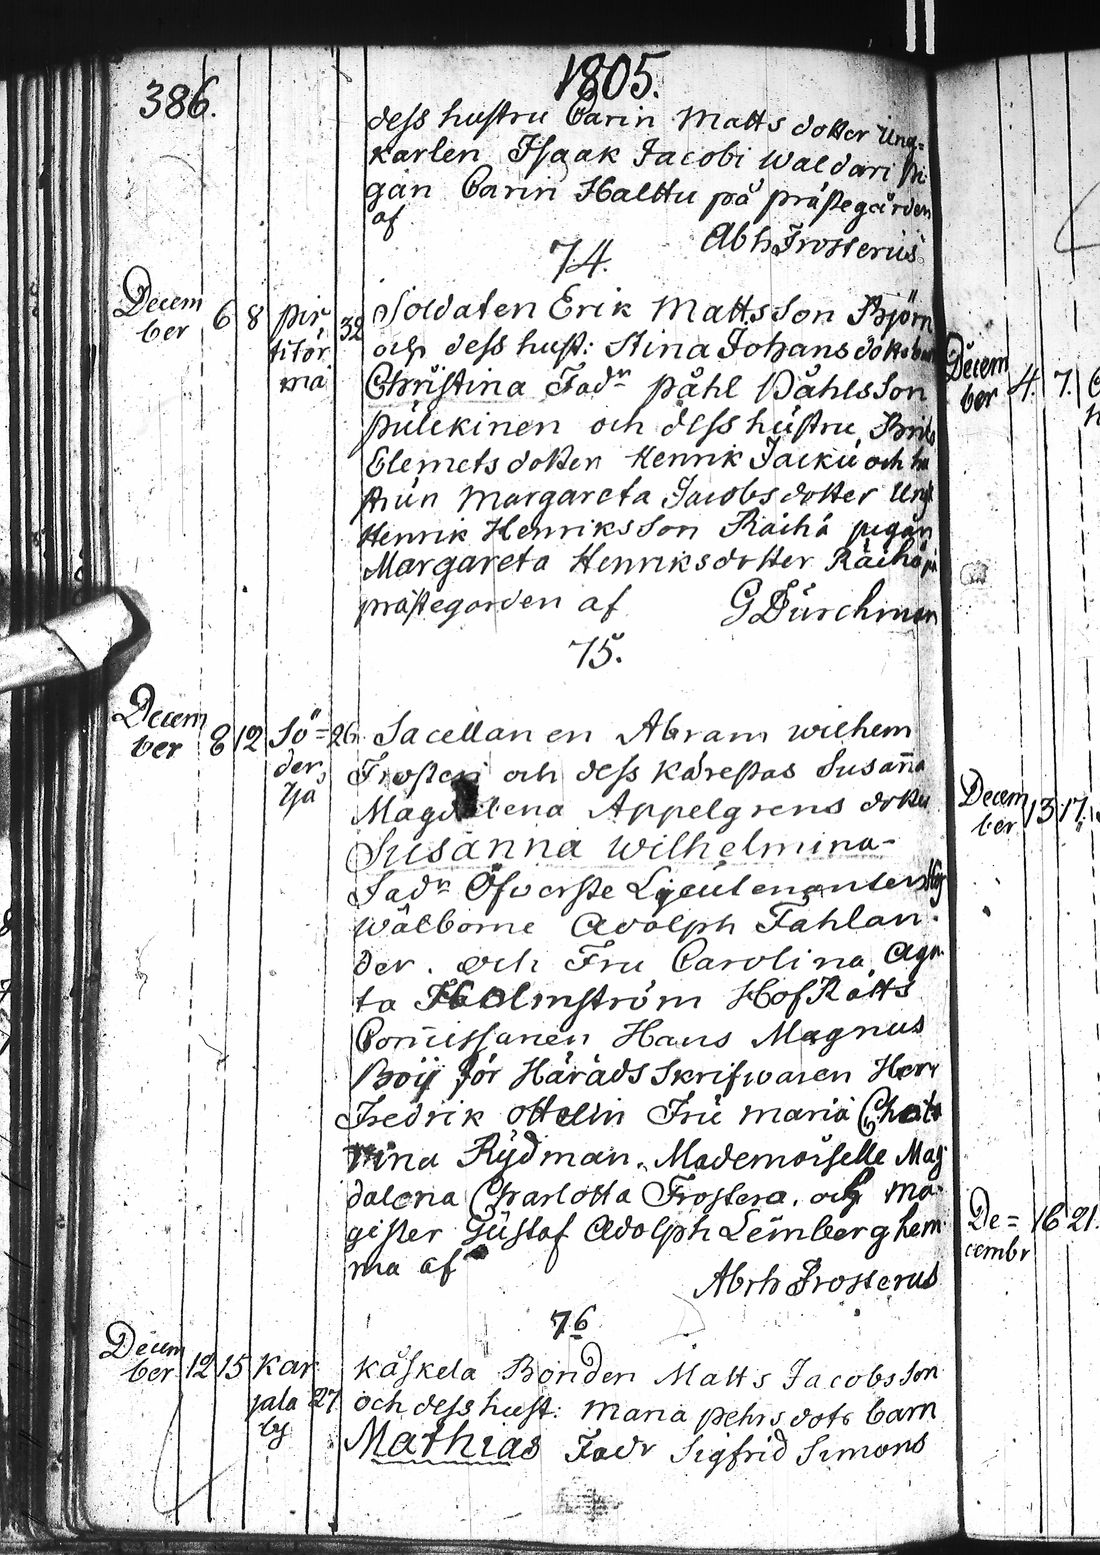 1805.
386.
dess hustru Carin Matts dotter Ung=
karlen Isaak Jacobi Waldari Pi
gan Carin Halttu på prästegården
af
Abh Frosterus
74.
Decem
ber 6 8 pir
titör
mä 32
Soldaten Erik Mattsson Björn
och dess hust: Stina Johans dott barn
Christina Fadr Påhl Påhlsson
Pulckinen och dess hustru Brita
Clemets dotter Henrik Jacku och hu
strun Margareta Jacobs dotter Ungk
Henrik Henriksson Räihä pigan
Margareta Henriksdotter Räihä på
prästegården af G Burchman
75.
Decem
ber 8 12 Sö=
der
sjä 26
Sacellanen Abram Wilhem
Frosteri och dess Kärestas Susanna
Magdalena Appelgrens dotter
Susanna Wilhelmina-
Fadr Öfverste Lieutenanten Hög
Wälborne Adolph Fahlan
der. och Fru Carolina Agn
ta Holmström HofRätts
Comissarien Hans Magnus
Boij för Härads Skrifwaren Herr
Fredrik Ottelin Fru Maria Chata
rina Rydman. Mademoiselle Mag
dalena Charlotta Frostera. och Ma
gister Gustaf Adolph Lemberg hem
ma af
Abrh Frosterus
76
Decem
ber 12 15 Kar
jala
by 27
Käskela Bonden Matts Jacobsson
och dess hust: Maria Pehrs dotr barn
Mathias Fadr Sigfrid Simons
Decem
ber 4. 7.
Decem
ber 13 17.
De=
cembr 16 21.